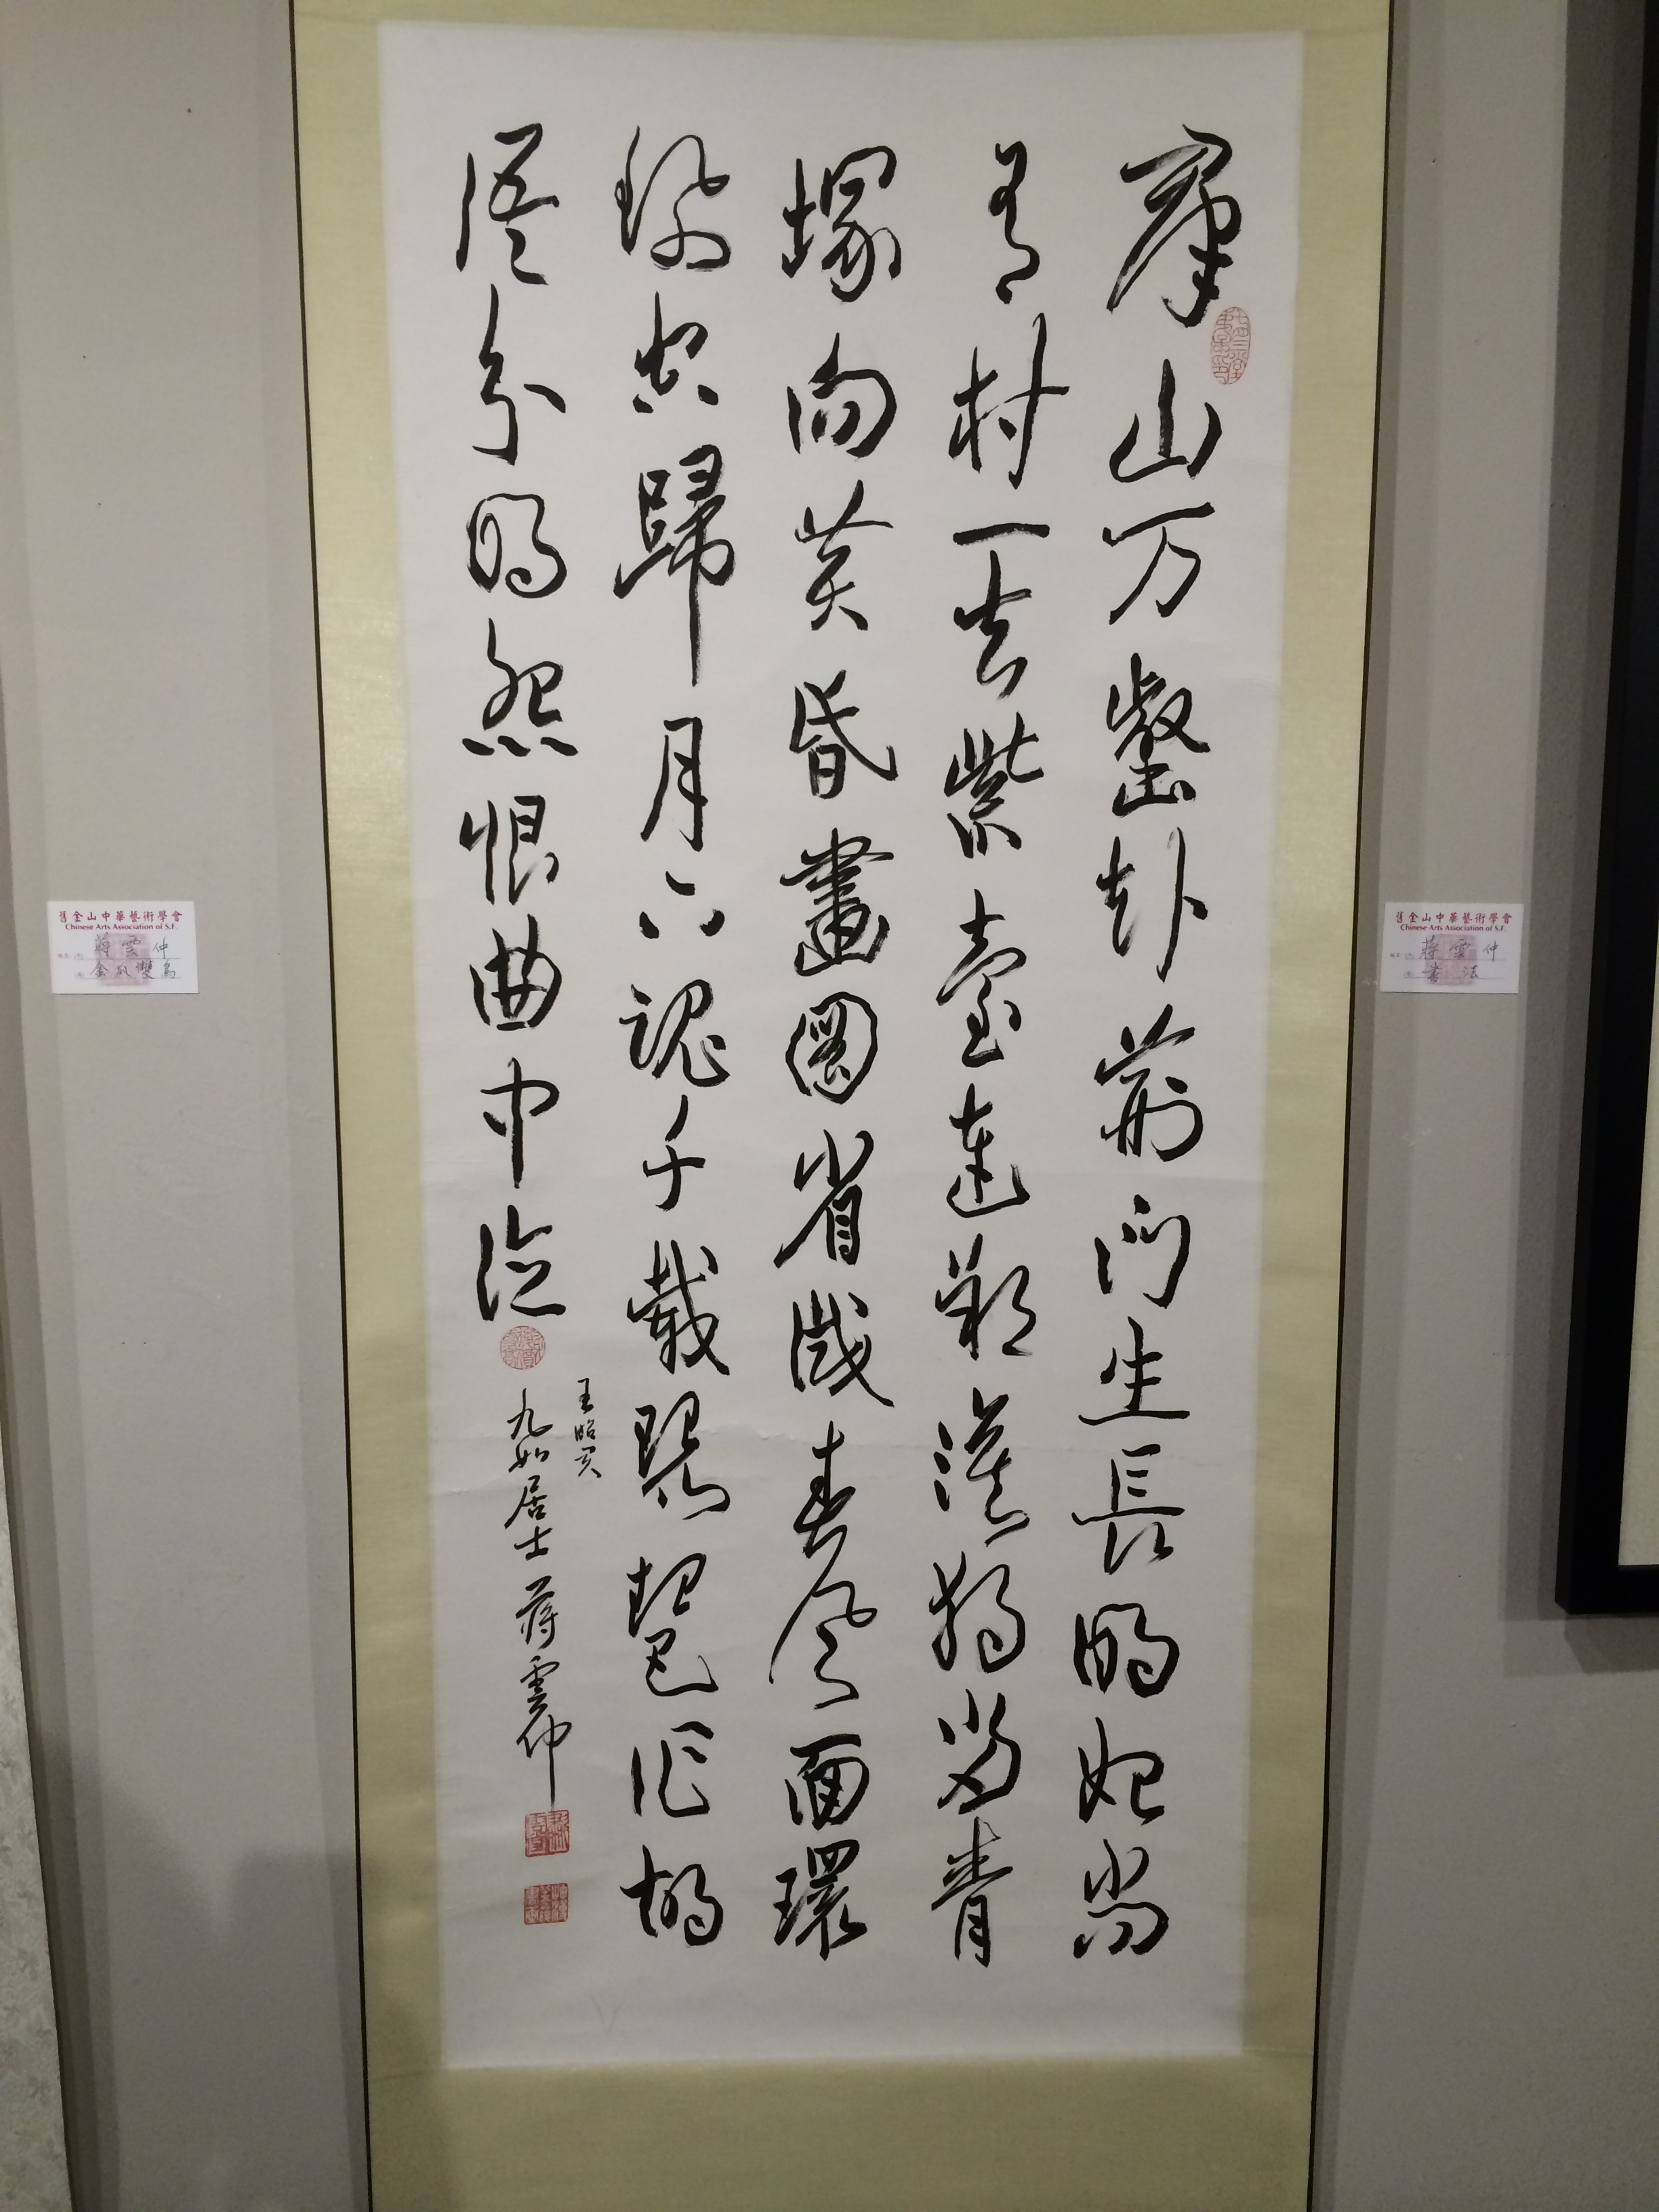 羣山万壑赴荊門生長明妃尚
有村一去紫臺連朔漠獨留青
塚向黃昏畫圖省識春風面環
珮空歸月下魂千載琵琶作胡
語分明怨恨曲中論
王昭君
九如居士蔣雲仲
舊金山中華藝術學會
Chinese Arts Association of S.F.
蔣雲仲
書法
舊金山中華藝術學會
Chinese Arts Association of S.F.
蔣雲仲
金瓜雙鳥